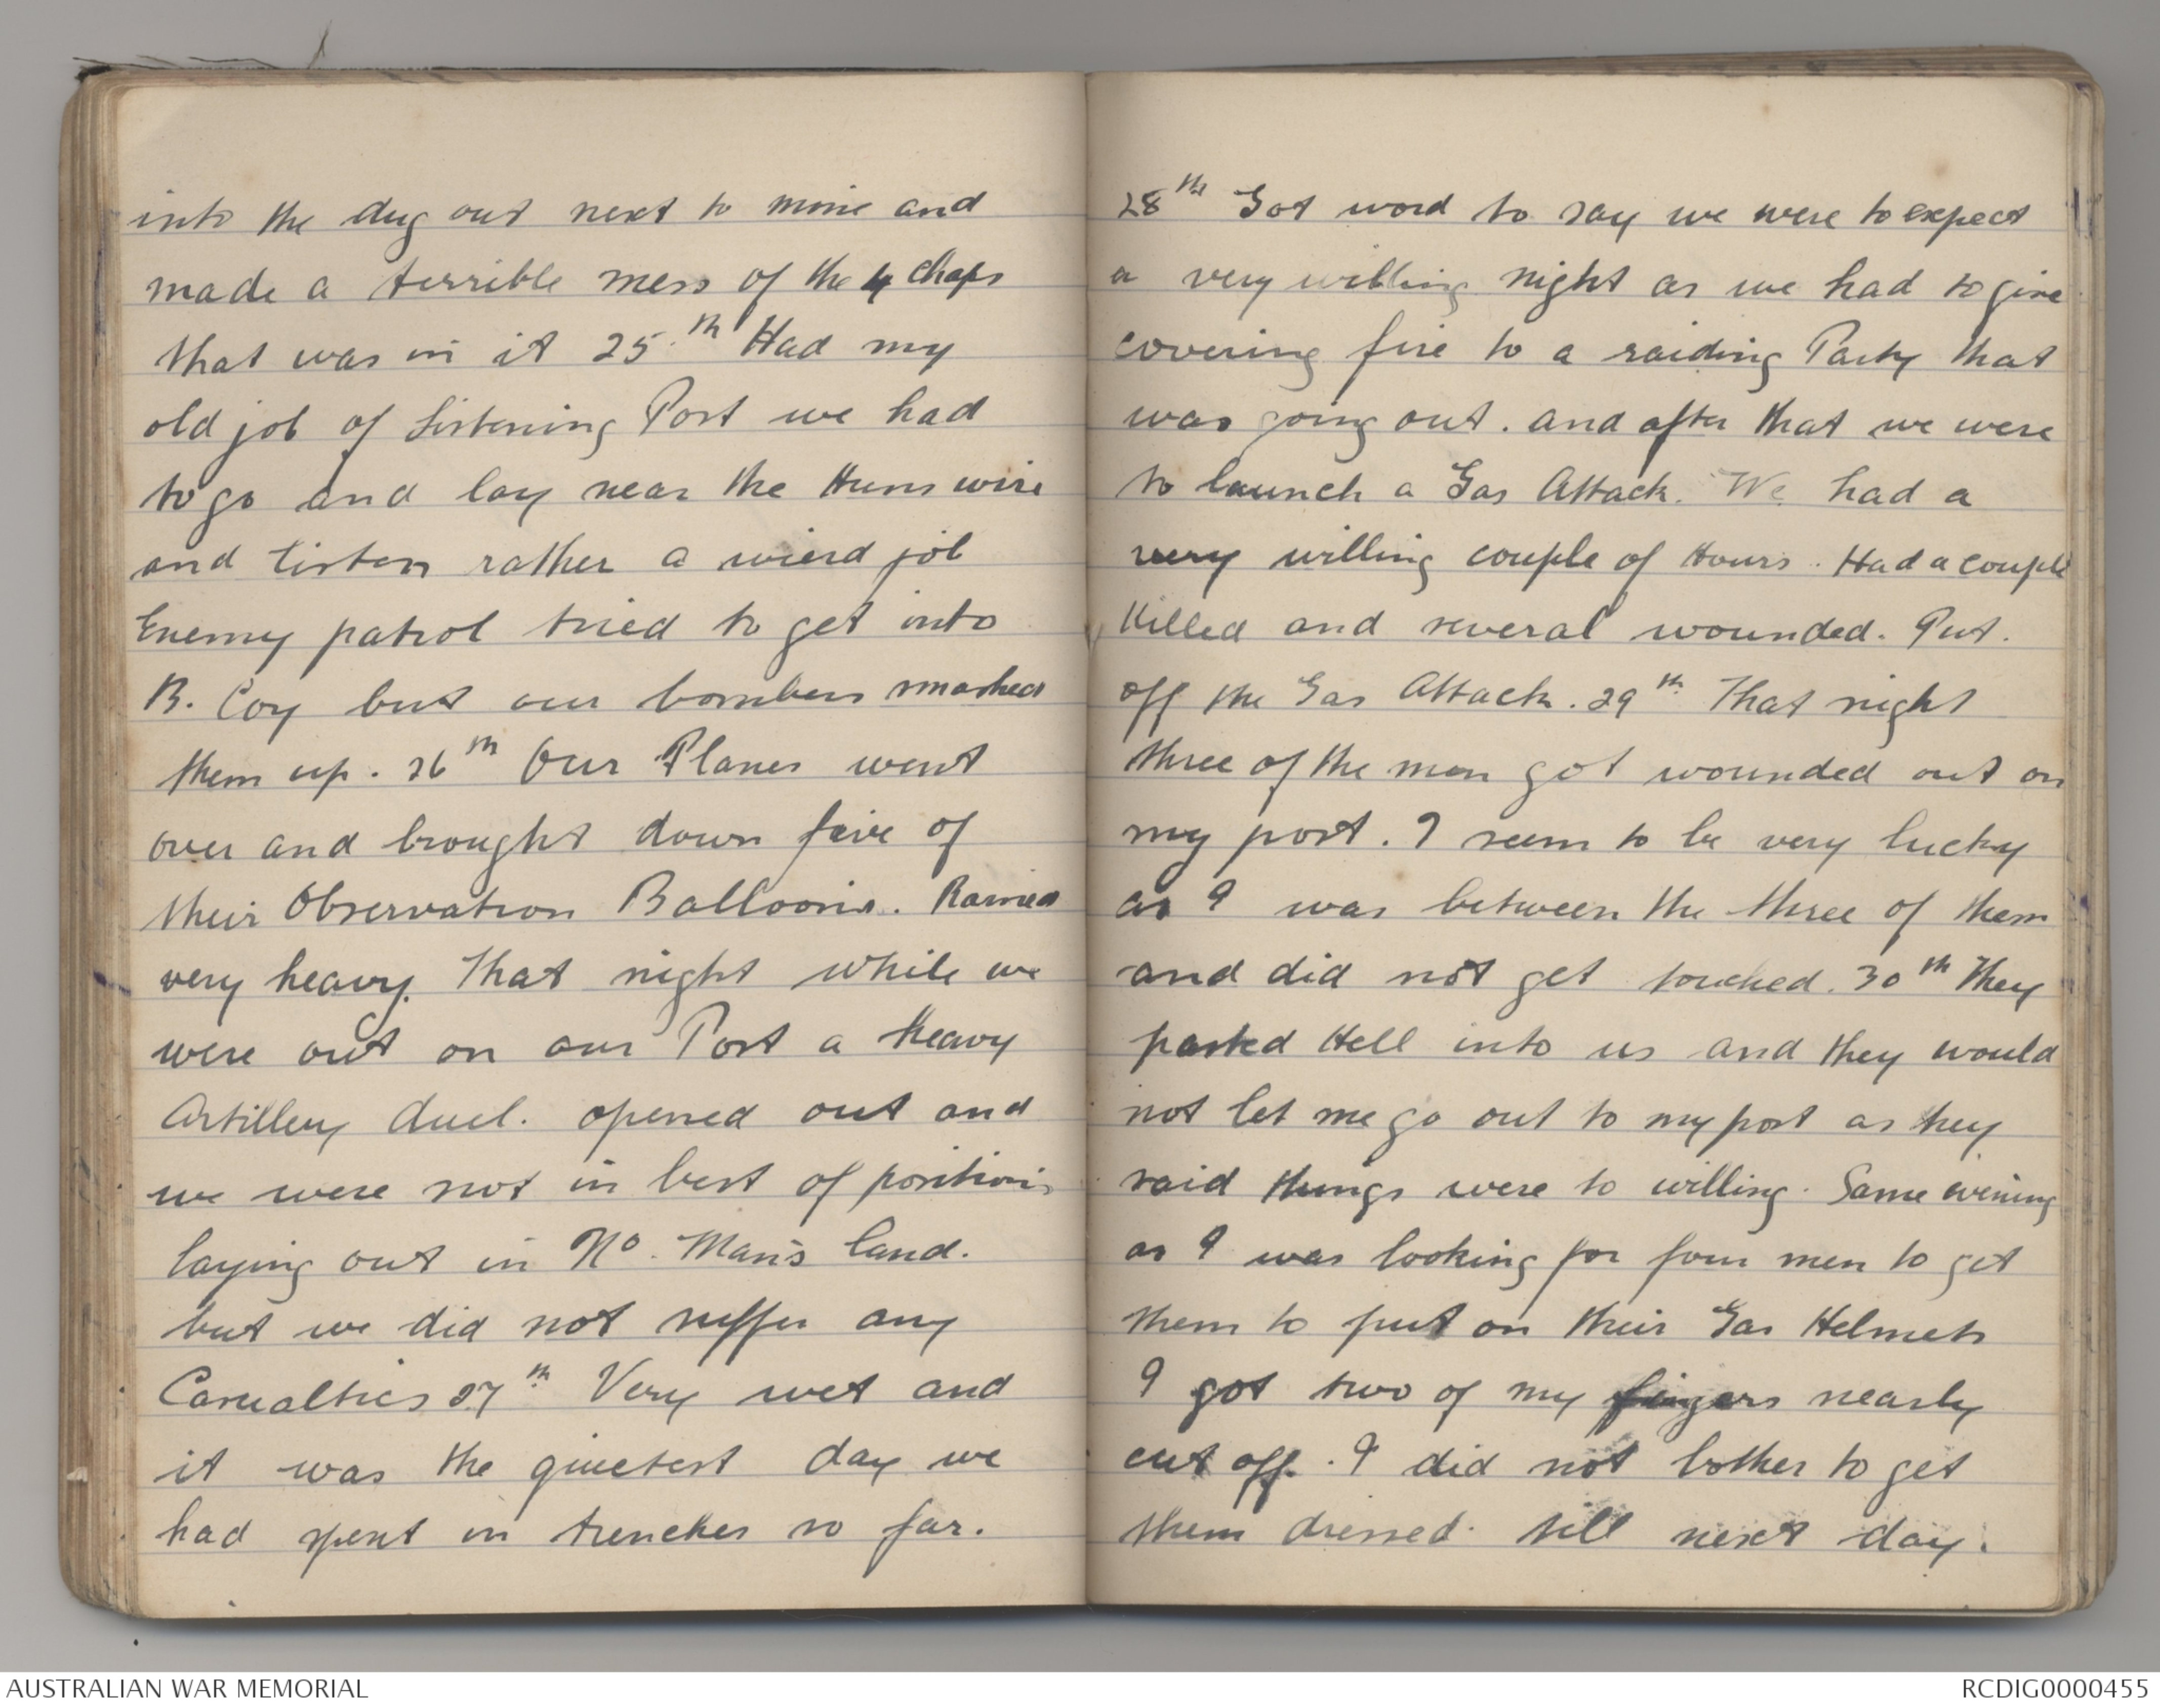 into the dug out next to mine and
made a terrible mess of the 4 chaps
that was in it 25.th Had my
old job of Listening Post we had
to go and lay near the Huns wire
and listen rather a wierd job
Enemy patrol tried to get into
B. Coy but our bombers smashed
them up. 26th Our Planes went
over and brought down five of
their Observation Balloons. Rained
very heavy. That night while we
were out on our Post a heavy
Artillery duel. opened out and
we were not in best of positions
laying out in No. Man's land.
but we did not suffer any
Casualties 27th Very wet and
it was the quietest day we
had spent in trenches so far.
28th Got word to say we were to expect
a very willing night as we had to give
covering fire to a raiding Party that
was going out. and after that we were
to launch a Gas Attack. We had a
very willing couple of Hours. Had a couple
Killed and several wounded. Put.
off the Gas Attack. 29th That night
three of the men got wounded out on
my post. I seem to be very lucky
as I was between the three of them
and did not get touched. 30th They
pasted Hell into us and they would
not let me go out to my post as they
said things were to willing. Same evening
as I was looking for four men to get
them to put on their Gas Helmets
I got two of my fingers nearly
cut off. I did not bother to get
them dressed till next day.
AUSTRALIAN WAR MEMORIAL
RCDIG0000455